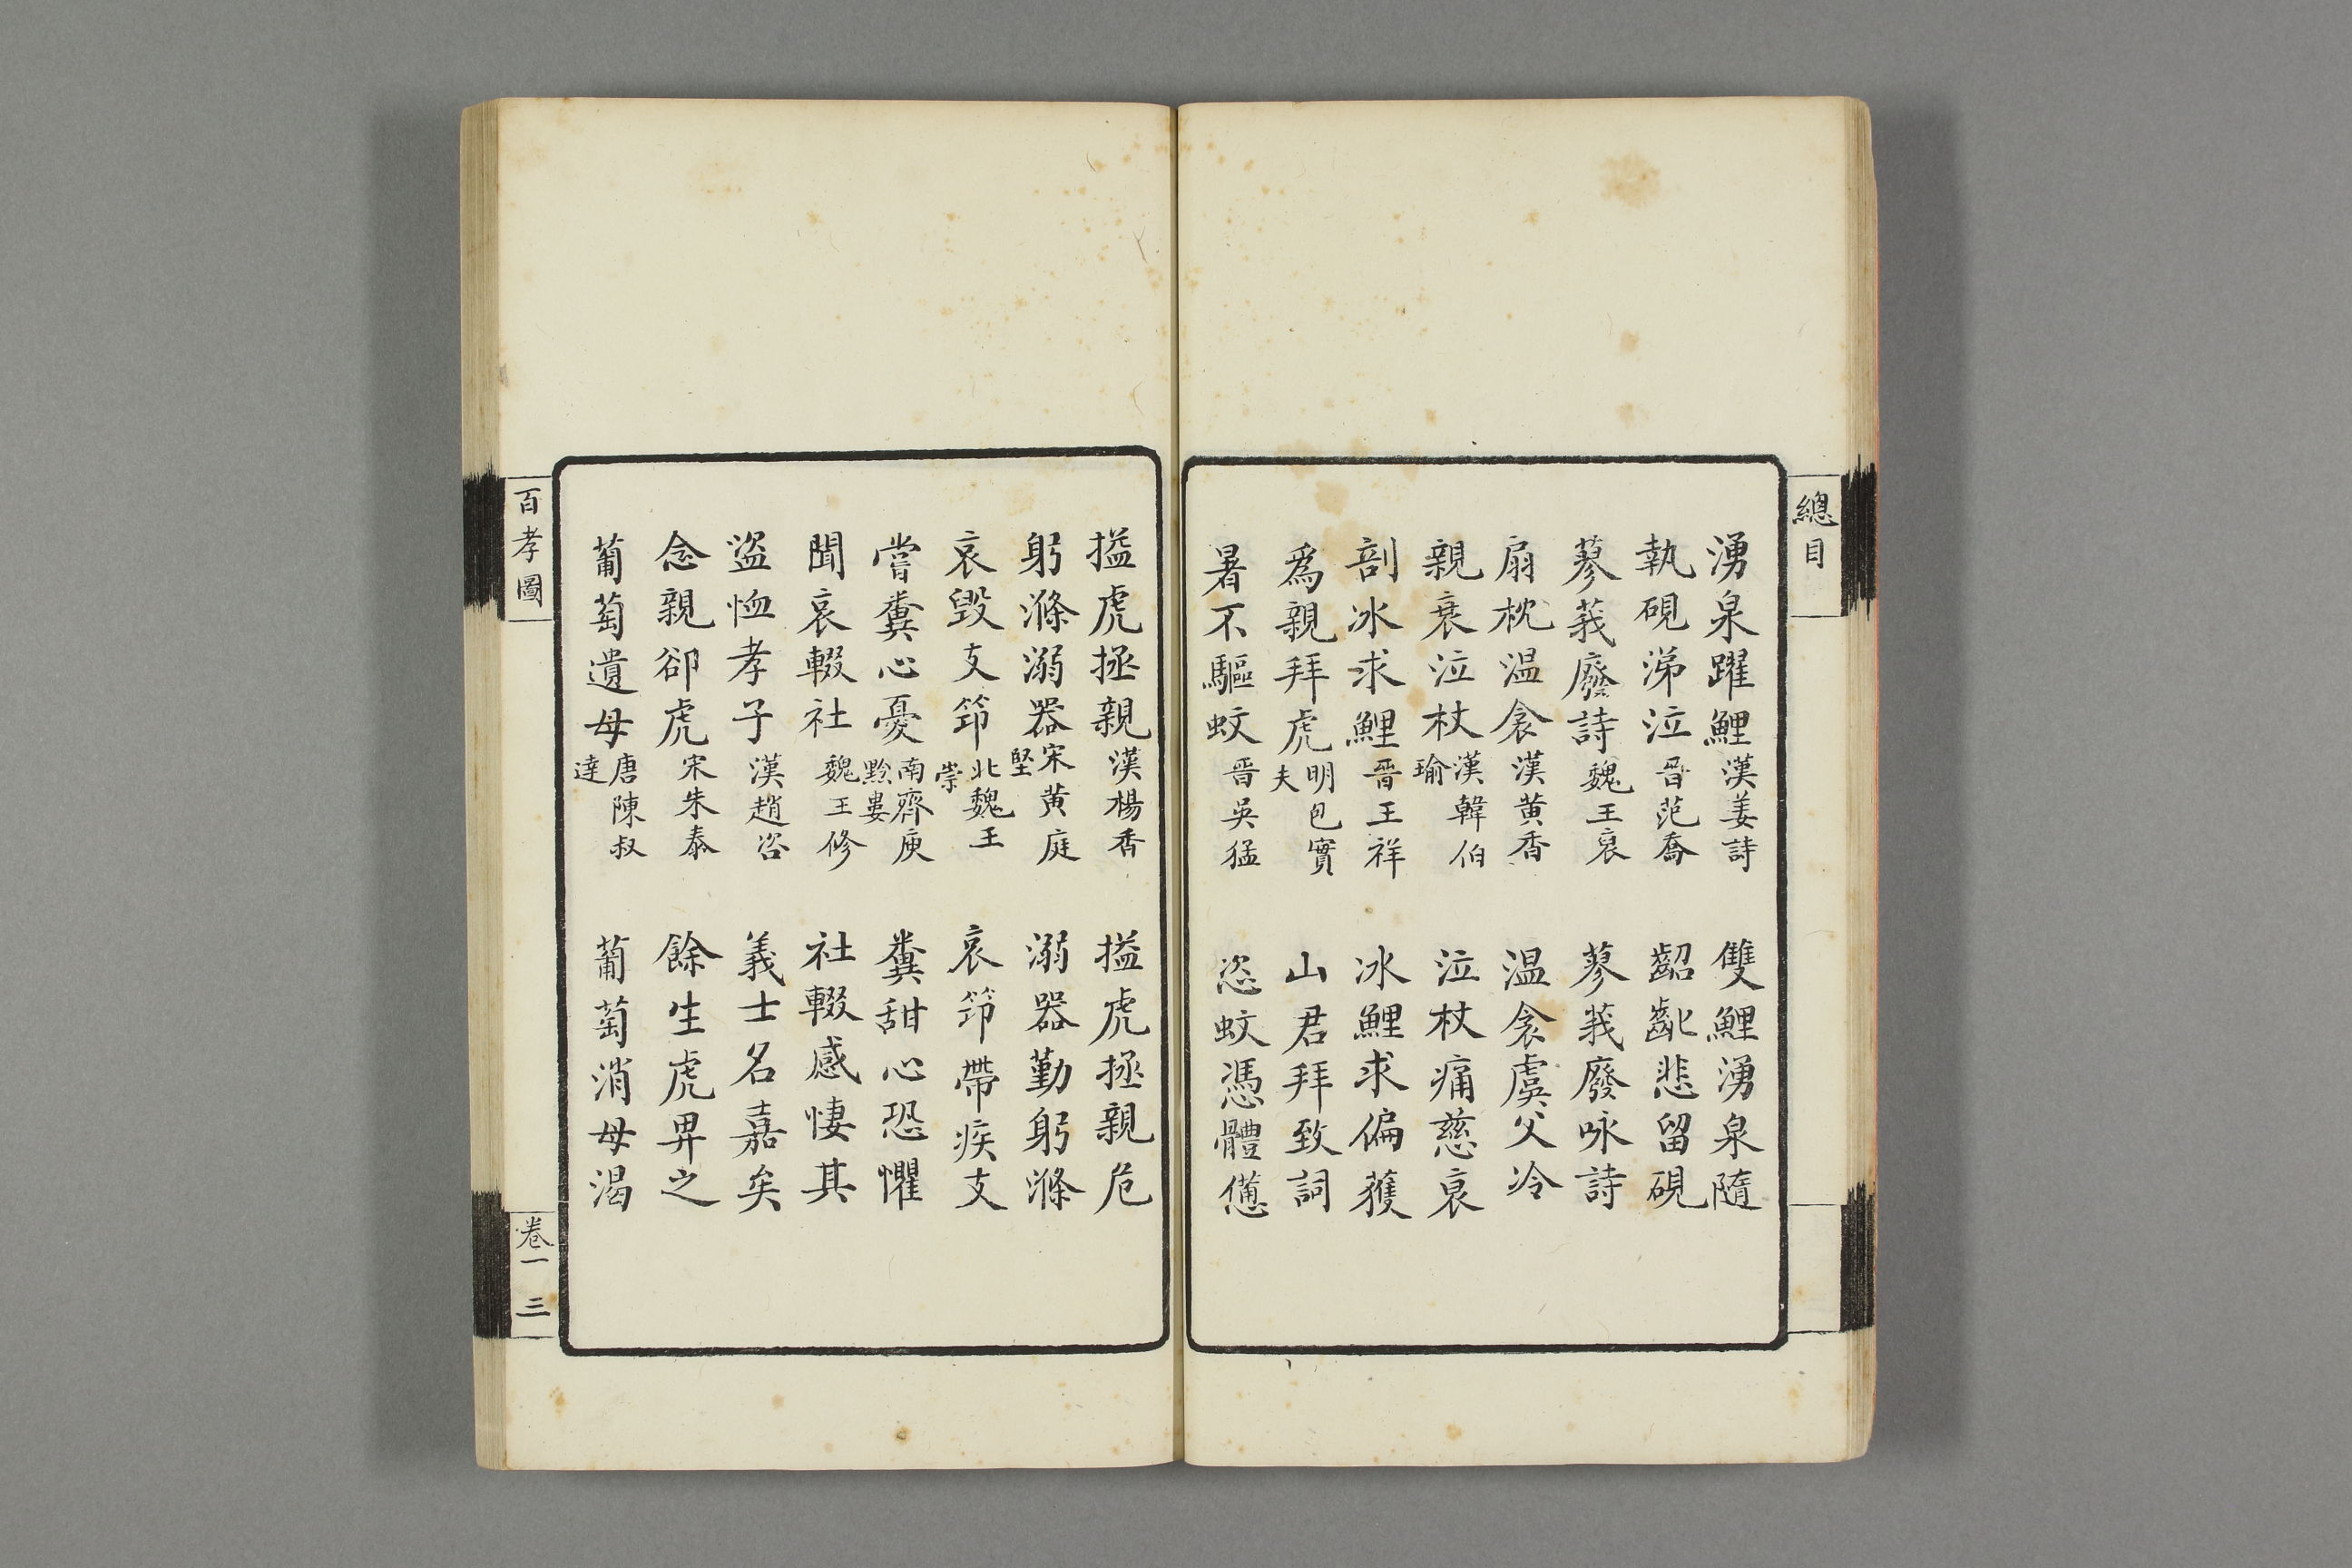 總目
湧泉躍鯉漢姜詩 雙鯉湧泉隨
執硯涕泣晉范喬 齠齔悲留硯
蓼莪廢詩魏王裒 蓼莪廢咏詩
扇枕温衾漢黄香 温衾虞父冷
親衰泣杖漢韓伯瑜 泣杖痛慈衰
剖冰求鯉晉王祥 冰鯉求偏獲
爲親拜虎明包實夫 山君拜致詞
暑不驅蚊晉吳猛 恣蚊憑體僊
搤虎拯親漢楊香 搤虎拯親危
躬滌溺器宋黄庭堅 溺器勤躬滌
哀毁支笻北魏王崇 哀笻帶疾支
嘗糞心憂南齊庾黔婁 糞甜心恐懼
聞哀輟社魏王修 社輟感悽其
盜恤孝子漢趙咨 義士名嘉矣
念親卻虎宋朱泰 餘生虎畀之
葡萄遺母唐陳叔達 葡萄消母渴
百孝圖
卷一 三